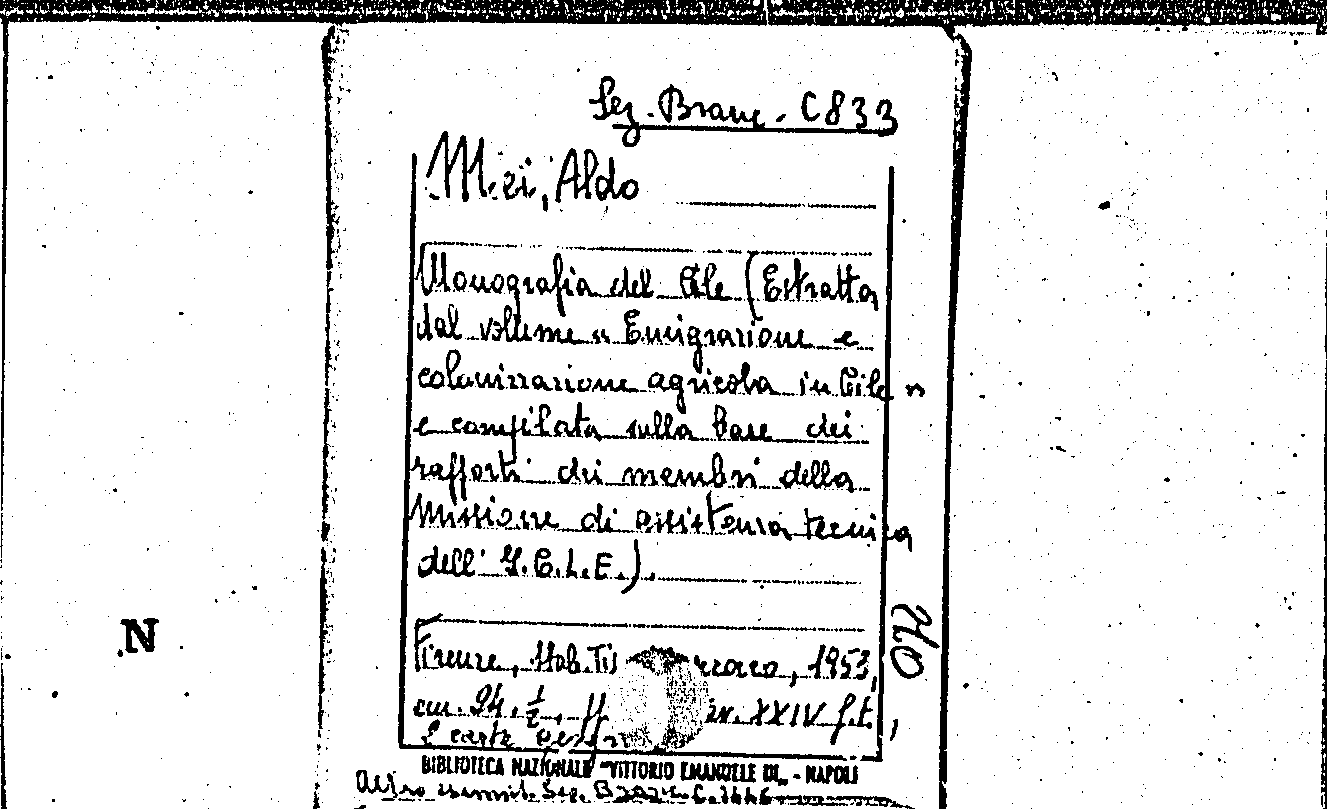 Sez. Branc. C 833
Mei, Aldo
Monografia del Cile (Estratta
dal volume « Emigrazione e
colonizzazione agricola in Cile »
e compilata sulla base dei
rapporti dei membri della
Missione di assistenza tecnica
dell' I.C.L.E.).
Firenze, Stab. Tip
1953,
cm. 24. ½, pp
XXIV f.t.,
2 carte
N
BIBLIOTECA NAZIONALE "VITTORIO EMANUELE III„ - NAPOLI
Altro esempl. Sez. Branc. C.